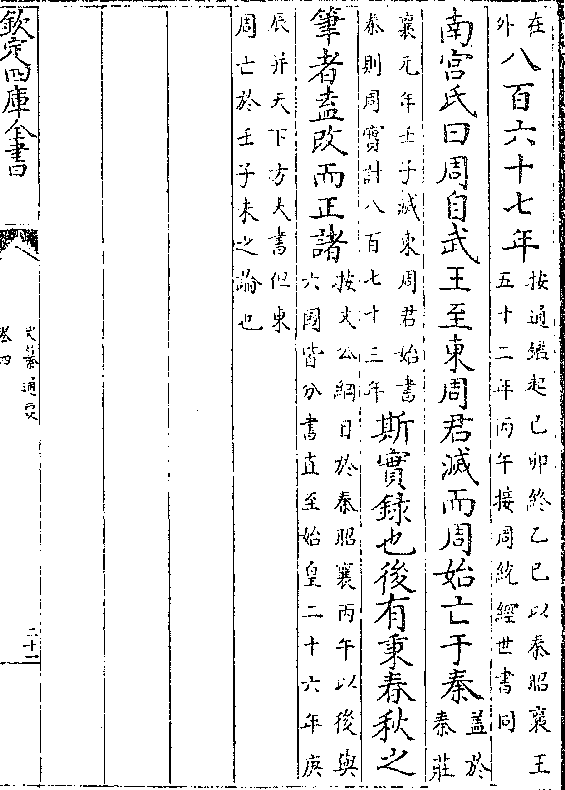 在
外
八百六十七年
按通鑑起己卯終乙巳以秦昭襄王
五十二年丙午接周統經世書同
南宮氏曰周自武王至東周君滅而周始亡于秦
蓋於
秦莊
襄元年壬子滅東周君始書
秦則周實計八百七十三年
斯實録也後有秉春秋之
筆者盍改而正諸
按文公綱目於秦昭襄丙午以後與
六國皆分書直至始皇二十六年庚
辰并天下方大書但東
周亡於壬子未之論也
欽定四庫全書
史纂通要
卷四
二十一